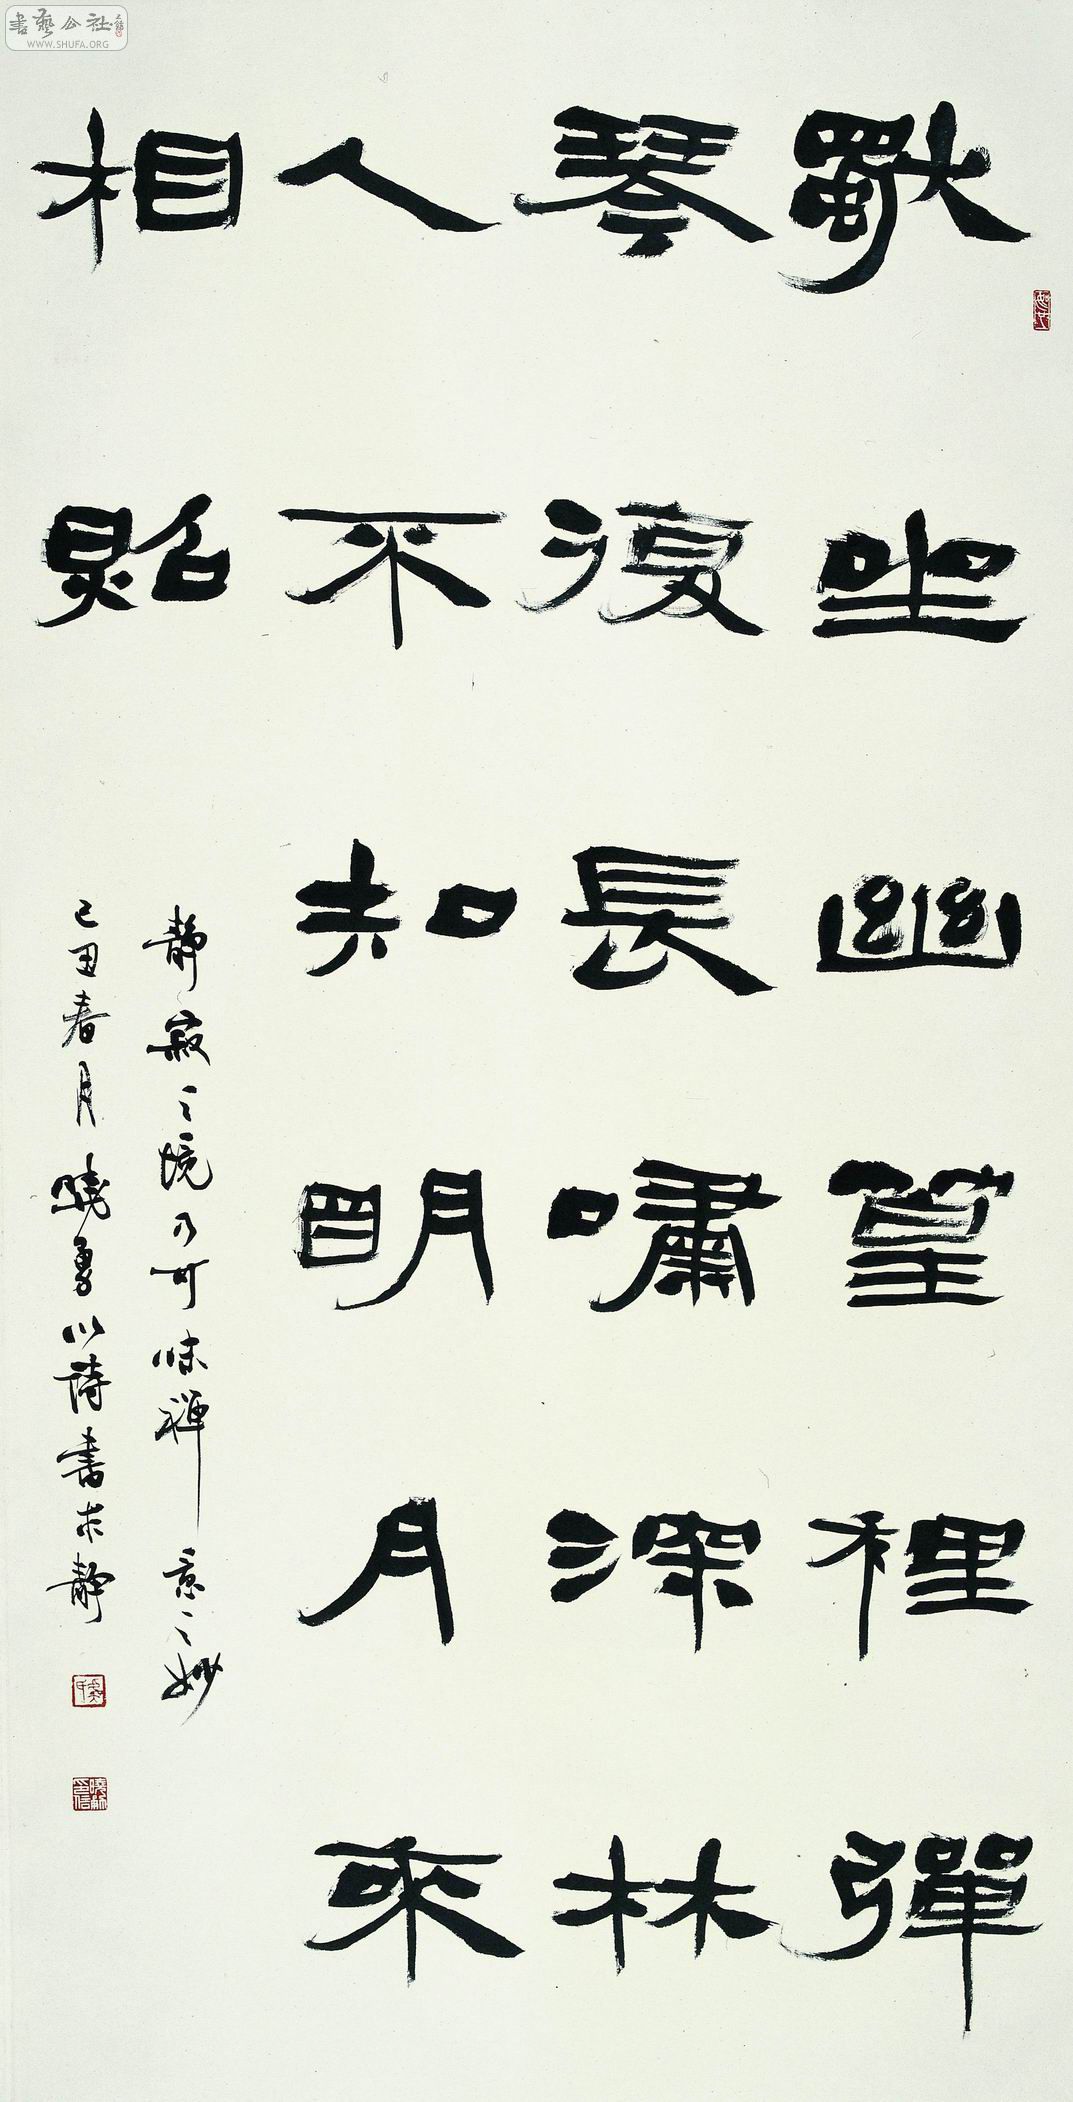 獨坐幽篁裡彈
琴復長嘯深林
人不知明月來
相照
静寂之境乃可味禅意之妙
己丑春月曉勇以詩書求静
書藝公社
WWW.SHUFA.ORG